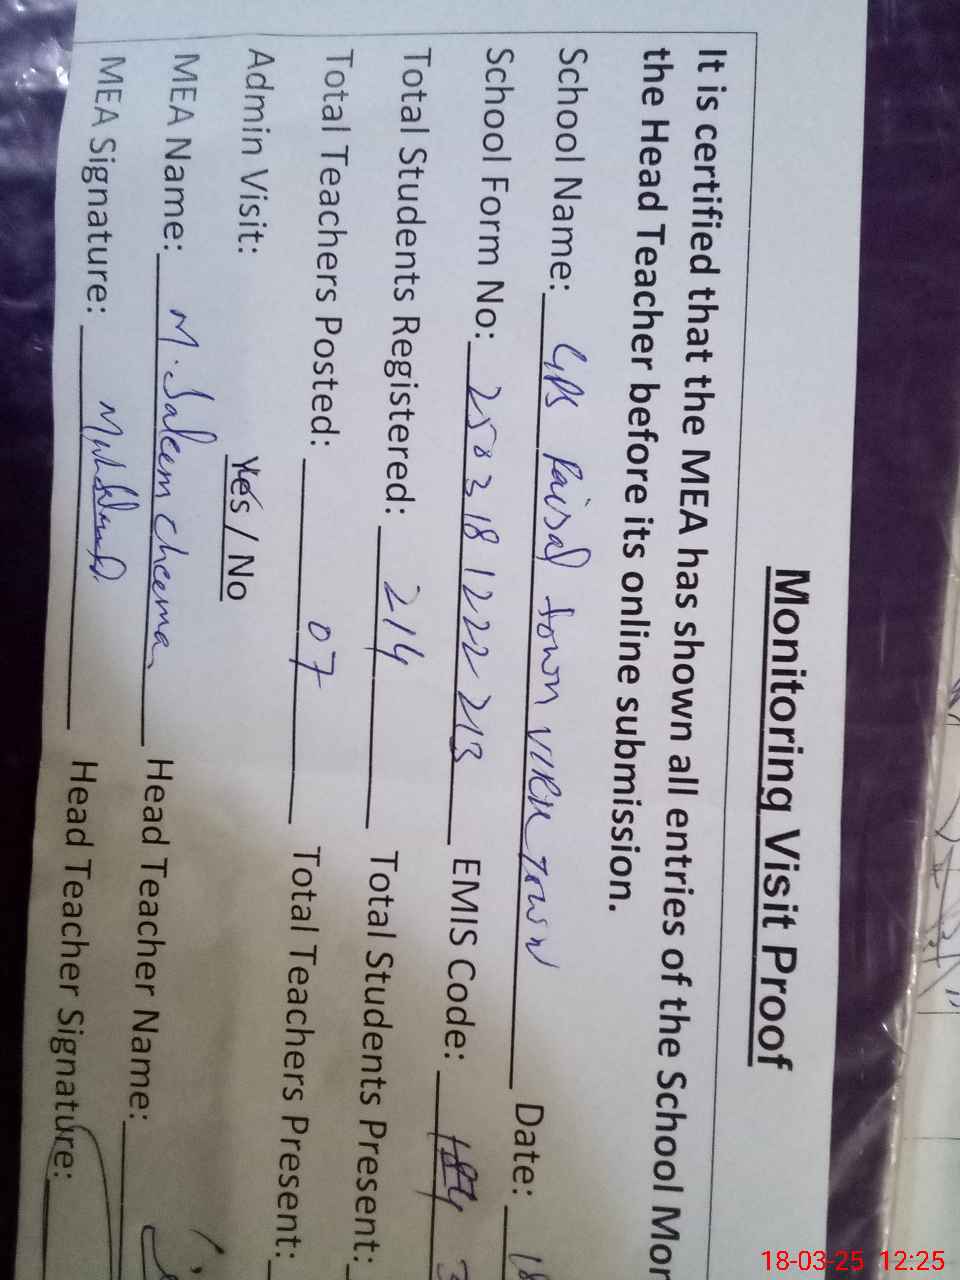 Monitoring Visit Proof
It is certified that the MEA has shown all entries of the School Mor
the Head Teacher before its online submission.
School Name: GPS Faisal Town VIRK TOWN Date: 18
School Form No: 250318 1222 213 EMIS Code:
Total Students Registered: 214 Total Students Present:
Total Teachers Posted: 07 Total Teachers Present:
Admin Visit: Yes / No
MEA Name: M. Saleem Cheema Head Teacher Name:
MEA Signature: Head Teacher Signature:
18-03-25 12:25